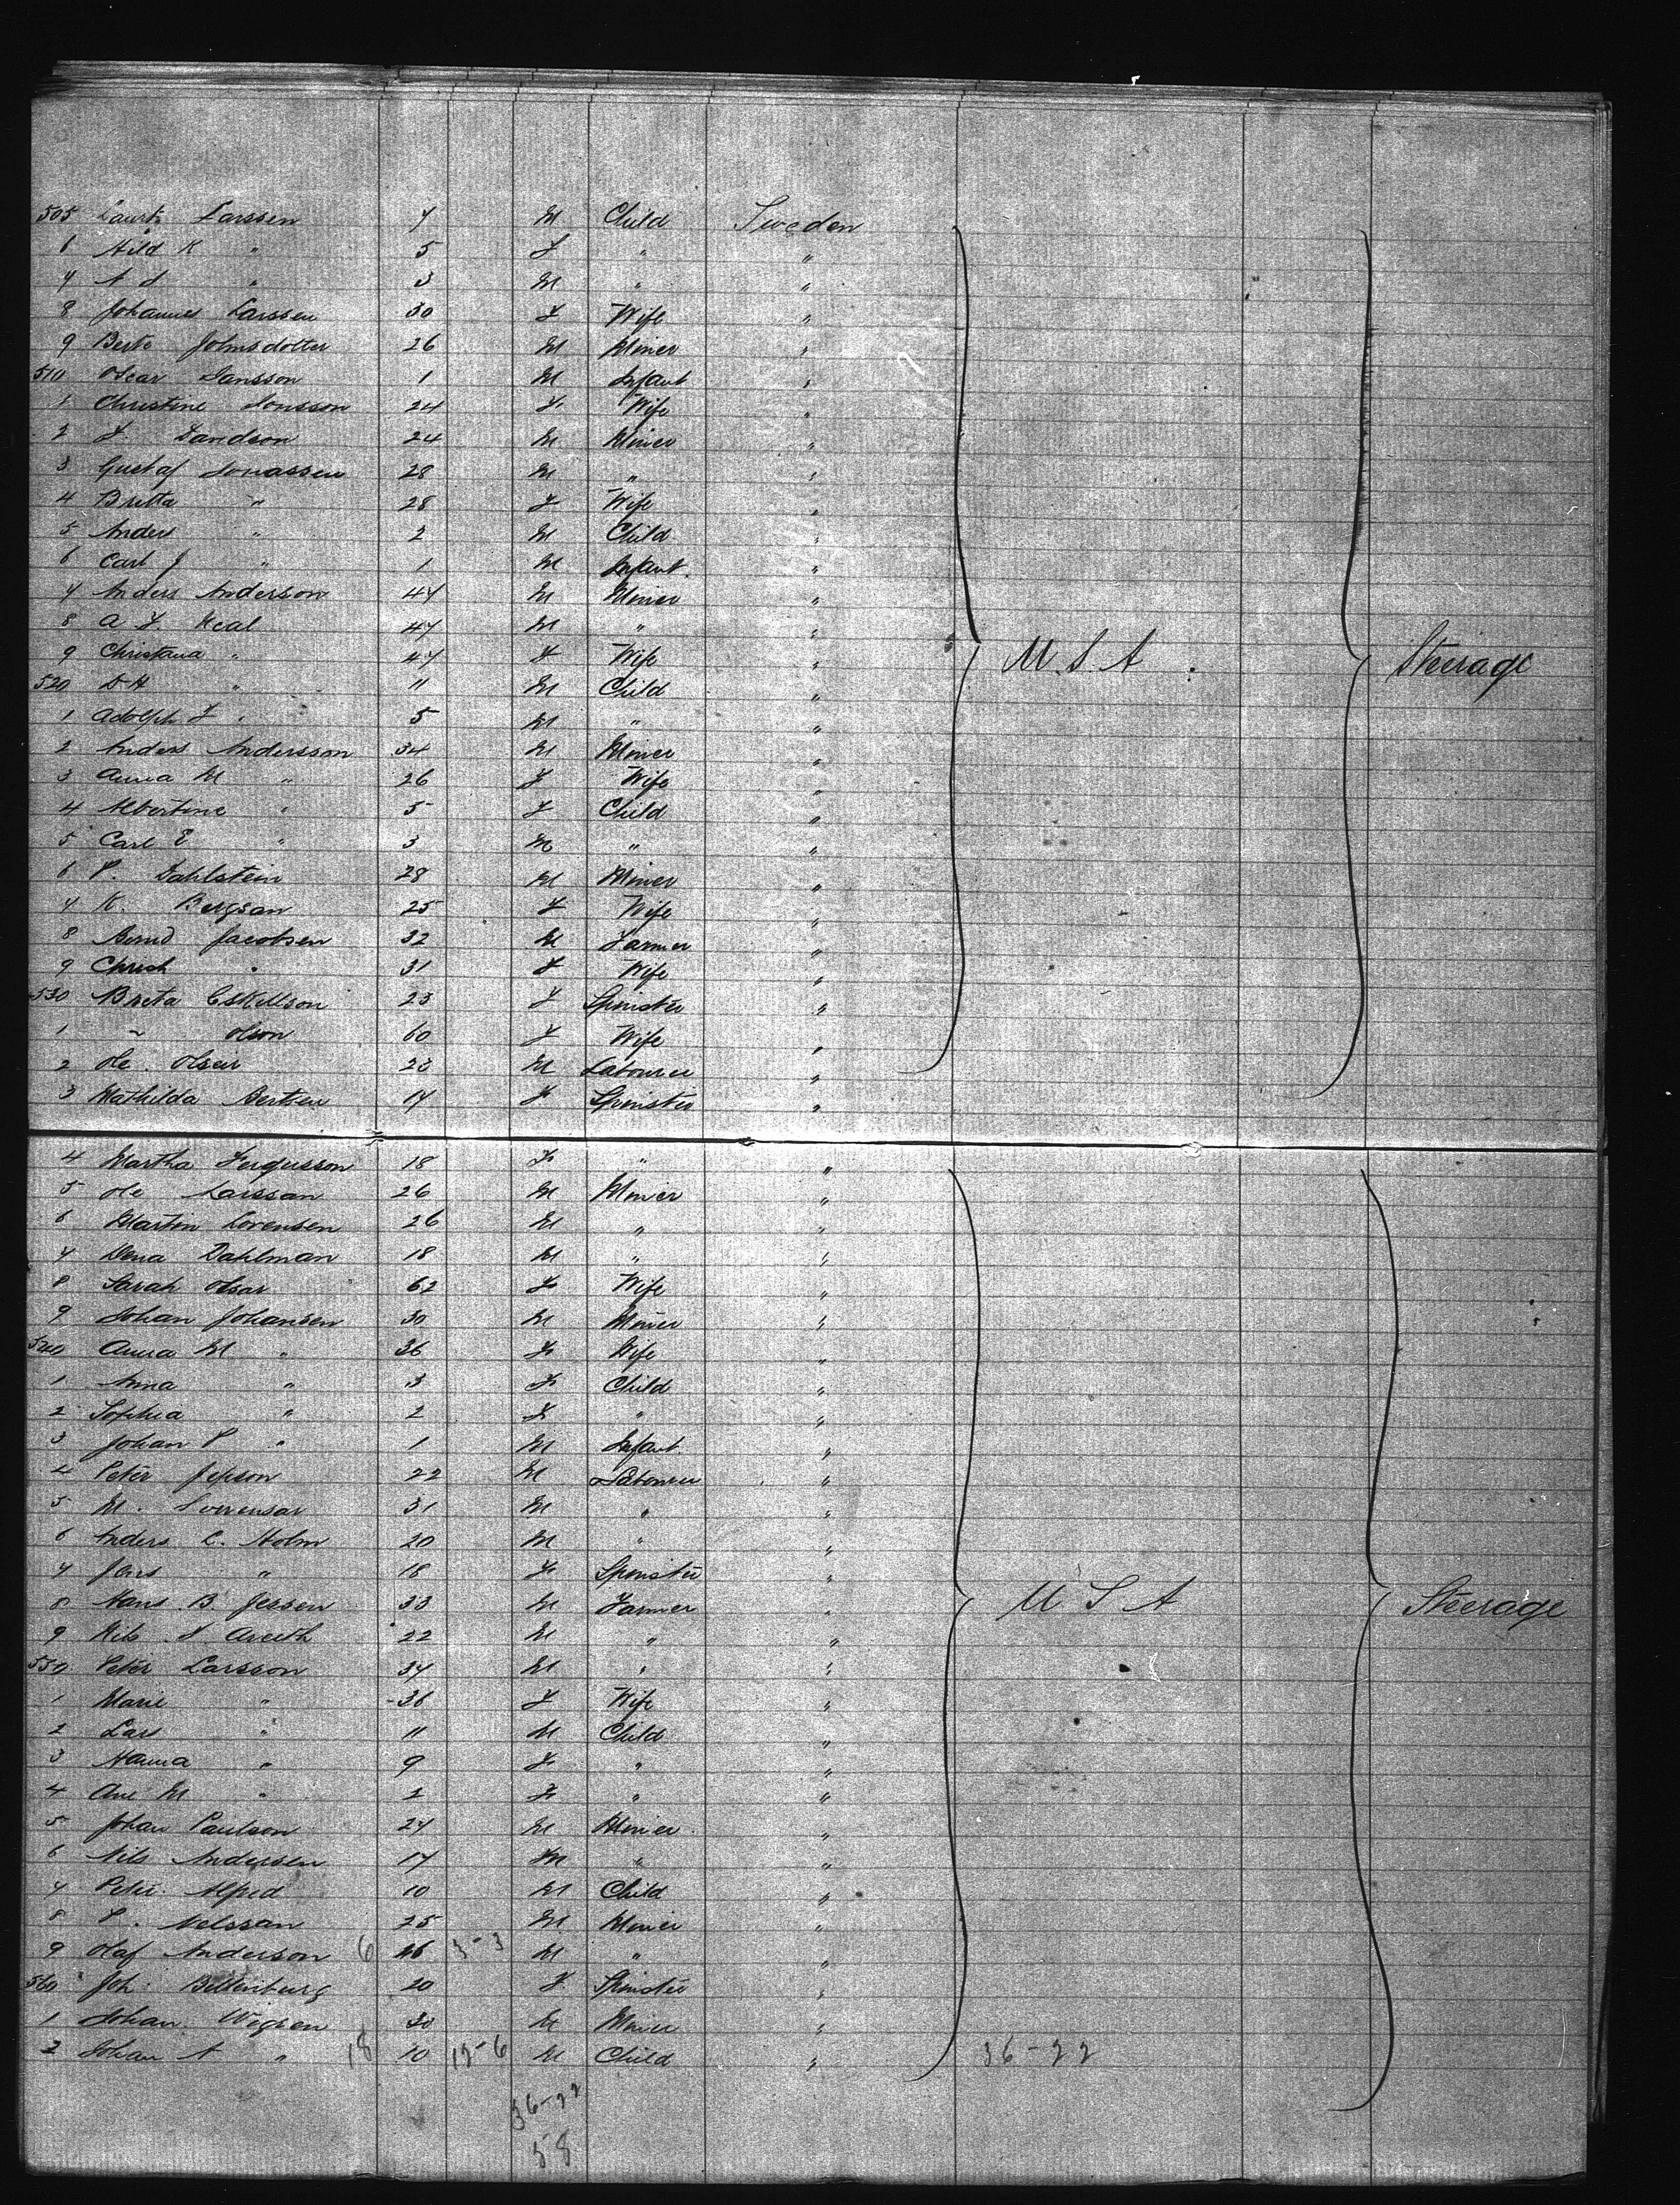 505 Laurtz Larssen 7 M Child Sweden
6 Hild K " 5 F " "
7 A S " 3 M " "
8 Johannes Larssen 30 F Wife "
9 Berta Johnsdotter 26 M Miner "
510 Oscar Jansson 1 M Infant "
1 Christine Jonsson 24 F Wife "
2 F. Dandson 24 M Miner "
3 Gustaf Jonassen 28 M " "
4 Britta " 28 F Wife "
5 Anders " 2 M Child "
6 Carl J " 1 M Infant "
7 Anders Anderson 47 M Miner "
8 A. F. Neal 47 M " "
9 Christana " 47 F Wife " U.S.A. Steerage
520 D H " 11 M Child "
1 Adolph F " 5 M " "
2 Anders Andersson 34 M Miner "
3 Anna M " 26 F Wife "
4 Albertine " 5 F Child "
5 Carl E " 3 M " "
6 P. Dahlstein 28 M Miner "
7 K. Bergsan 25 F Wife "
8 Bernd Jacobsen 32 M Farmer "
9 Christ " 31 F Wife "
530 Breta Eskillson 23 F Spinster "
1 " Olson 60 F Wife "
2 Ole Olsen 23 M Labourer "
3 Mathilda Bertsen 17 F Spinster "
4 Martha Fergusson 18 F " "
5 Ole Larssan 26 M Miner "
6 Martin Lorensen 26 M " "
7 Dena Dahlman 18 M " "
8 Sarah Olsar 62 F Wife "
9 Johan Johansen 30 M Miner "
540 Anna M " 36 F Wife "
1 Anna " 3 F Child "
2 Sophia " 2 F " "
3 Johan P " 1 M Infant "
4 Peter Jepson 22 M Labourer "
5 M. Sorrensar 31 M " "
6 Anders C. Holm 20 M " "
7 Jens " 18 F Spinster "
8 Hans B. Jessen 33 M Farmer " U S A Steerage
9 Nils 22 M " "
550 Peter Larsson 37 M " "
1 Marie " 36 F Wife "
2 Lars " 11 M Child "
3 Hanna " 9 F " "
4 Ane M " 2 F " "
5 Johan Paulson 27 M Miner "
6 Nils Andersen 17 M " "
7 Peter Alfred 10 M Child "
8 P. Nelssan 25 M Miner "
9 Olaf Anderson 6 46 3-3 M " "
560 Joh. Bellenburg 20 F Spinster "
1 Johan Wigren 30 M Miner "
2 Johan A " 18 10 19-6 M Child " 36-22
36-22
58